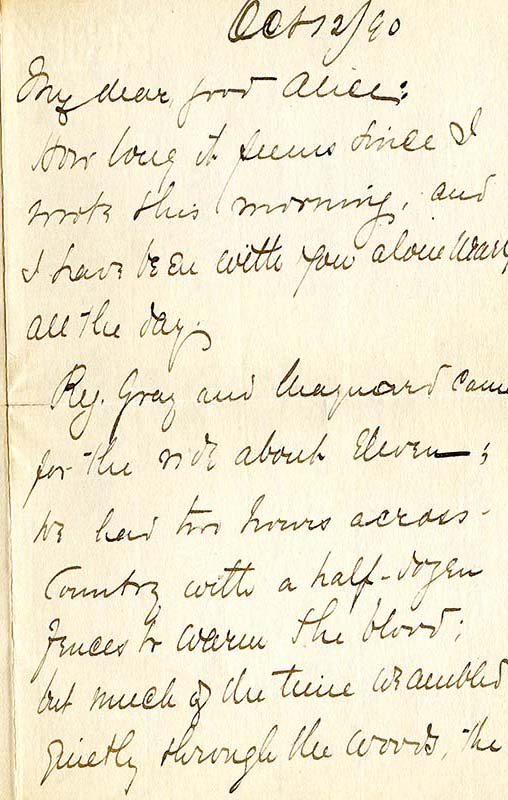 Oct 12/90
My dear, good Alice:
How long it seems since I
wrote this morning, and
I have been with you alone nearly
all the day.
Reg. Gray and Maynard came
for the ride about Eleven;
we had two hours across-
Country with a half-dozen
fences to warm the blood;
but much of the time we ambled
quietly through the woods, the